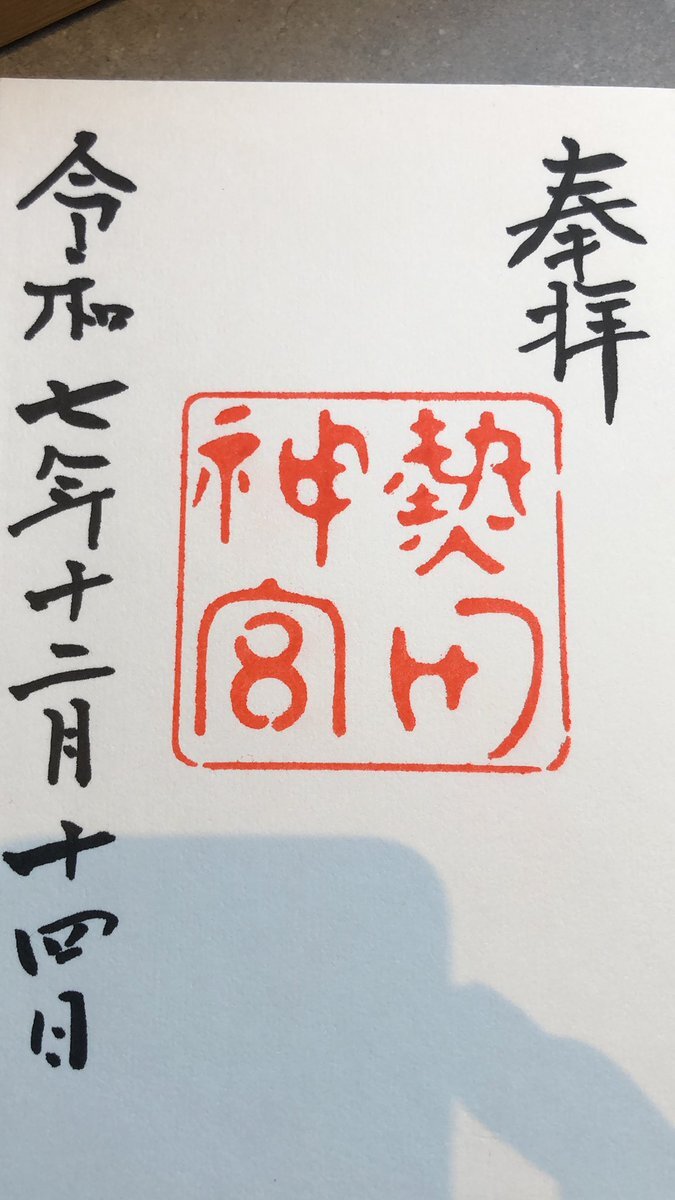 奉拝
熱田
神宮
令和七年十二月十四日